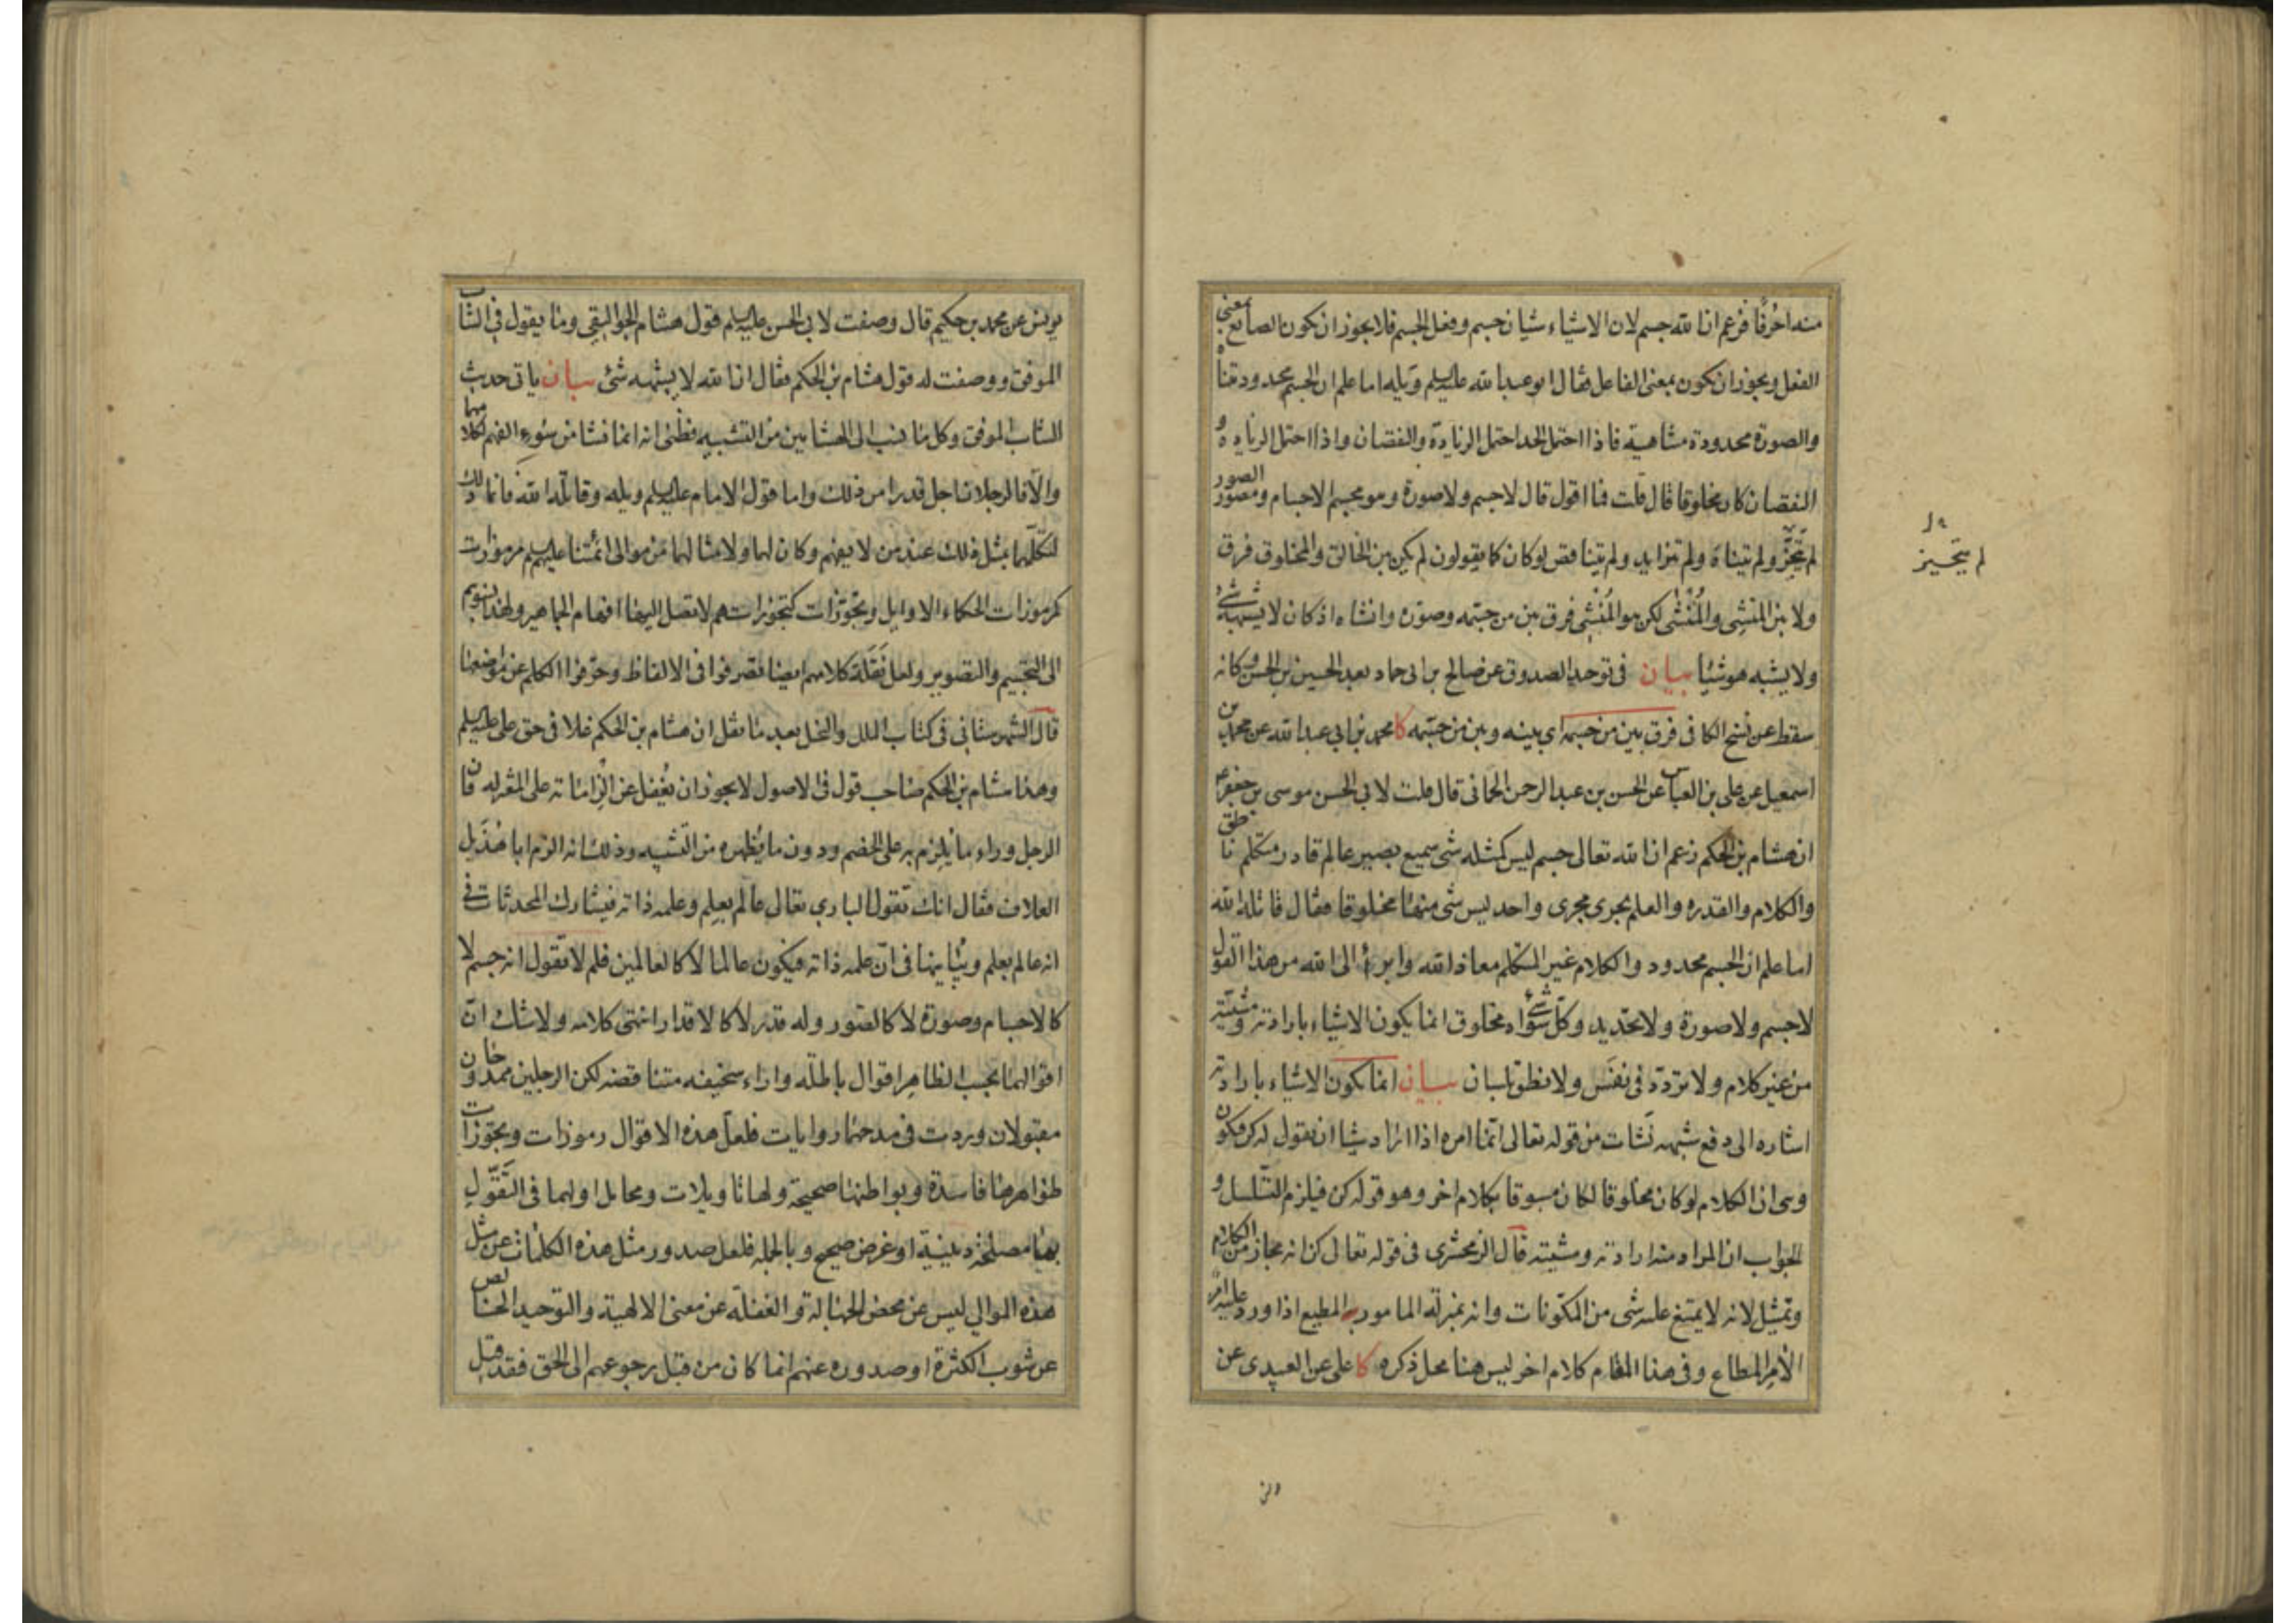 منه احرفا فزعم ان الله جسم لان الاشياء شيان جسم وفعل الجسم فلا يجوز ان يكون الصانع بمعنى
الفعل ويجوز ان يكون بمعنى الفاعل فقال ابو عبد الله عليه السلم ويله اما علم ان الجسم محدود متناه
والصورة محدودة متناهية فاذا احتمل الحد احتمل الزيادة والنقصان واذا احتمل الزيادة و
النقصان كان مخلوقا قال قلت فما اقول قال لا جسم ولا صورة وهو مجسم الاجسام ومصور الصور
لم يتجز ولم يتناه ولم يتزايد ولم يتناقص لو كان كما يقولون لم يكن بين الخالق والمخلوق فرق
ولا بين المنشئ والمنشئ لكن هو المنشئ فرق بين من جسمه وصوره وانشاه اذ كان لا يشبهه شئ
ولا يشبه هو شيئا بيان في توحيد الصدوق عن صالح بن ابى حماد بعد الحسين بن الحسن وكانه
سقط عن نسخ الكافى فرق بين من جسمه اى بينه وبين من جسمه كا محمد بن ابي عبد الله عن محمد بن
اسمعيل عن على بن العباس عن الحسن بن عبد الرحمن الحمانى قال قلت لابي الحسن موسى بن جعفر ع
ان هشام بن الحكم زعم ان الله تعالى جسم ليس كمثله شى سميع بصير عالم قادر متكلم ناطق
والكلام والقدره والعلم يجرى مجرى واحد ليس شى منها مخلوقا فقال قاتله الله
اما علم ان الجسم محدود والكلام غير المتكلم معاذ الله وابرأ الى الله من هذا القول
لا جسم ولا صورة ولا تحديد وكل شئ سواه مخلوق انما يكون الاشياء بارادته ومشيته
من غير كلام ولا تردد فى نفس ولا نطق بلسان بيان انما يكون الاشياء بارادته
اشاره الى دفع شبهه نشات من قوله تعالى انما امره اذا اراد شيئا ان يقول له كن فيكون
وهى ان الكلام لو كان مخلوقا لكان مسبوقا بكلام اخر وهو قوله كن فيلزم التسلسل و
الجواب ان المراد منه ارادته ومشيته قال الزمخشرى فى قوله تعالى كن انه مجاز من الكلام
وتمثيل لانه لا يمتنع عليه شى من المكونات وانه بمنزلة المامور المطيع اذا ورد عليه امر
الآمر المطاع وفى هذا المقام كلام اخر ليس هنا محل ذكره كا على عن العبيدى عن
لم يتحيز
يونس عن محمد بن حكيم قال وصفت لابى الحسن عليه السلم قول هشام الجواليقى وما يقول فى الشاب
الموفق ووصفت له قول هشام بن الحكم فقال ان الله لا يشبهه شئ بيان ياتى حديث
الشاب الموفق وكل ما نسب الى الهشامين من التشبيه فظنى انه انما نشا من سوء الفهم لكلامهما
والا فالرجلان اجل قدرا من ذلك واما قول الامام عليه السلم ويله وقاتله الله فانما ذلك
لتكلمهما بمثل ذلك عند من لا يفهم وكان لهما ولامثالهما من موالى ائمتنا عليهم السلم مرموزات
كرموزات الحكماء الاوايل وتجوزات كتجوزاتهم لا تصل اليها افهام الجماهير ولهذا نسبوهم
الى التجسيم والتصوير ولعل نقلة كلامهم ايضا تصرفوا فى الالفاظ وحرفوا الكلم عن مواضعها
قال الشهرستانى فى كتاب الملل والنحل بعد ما نقل ان هشام بن الحكم غلا فى حق على عليه السلم
وهذا هشام بن الحكم صاحب قول فى الاصول لا يجوز ان يغفل عن الزاماته على المعتزله فان
الرجل وراء ما يلزم به على الخصم ودون ما يظهره من التشبيه وذلك انه الزم ابا هذيل
العلاف فقال انك تقول البارى تعالى عالم بعلم وعلمه ذاته فيشارك المحدثات فى
انه عالم بعلم ويباينها فى ان علمه ذاته فيكون عالما لا كالعالمين فلم لا تقول انه جسم لا
كالاجسام وصورة لا كالصور وله قدر لا كالاقدار انتهى كلامه ولا شك ان
اقوالهما بحسب الظاهر اقوال باطله واراء سخيفه متناقضه لكن الرجلين ممدوحان
مقبولان وردت فى مدحهما روايات فلعل هذه الاقوال رموزات وتجوزات
ظواهرها فاسدة وبواطنها صحيحة ولها تاويلات ومحامل اولهما فى التقول
بها مصلحة دينية او غرض صحيح وبالجمله فلعل صدور مثل هذه الكلمات عن مثل
هذه الموالى ليس عن محض الجهالة والغفلة عن معنى الالهية والتوحيد الخالص
عن شوب الكثرة او صدوره عنهم انما كان من قبل رجوعهم الى الحق فقد قيل